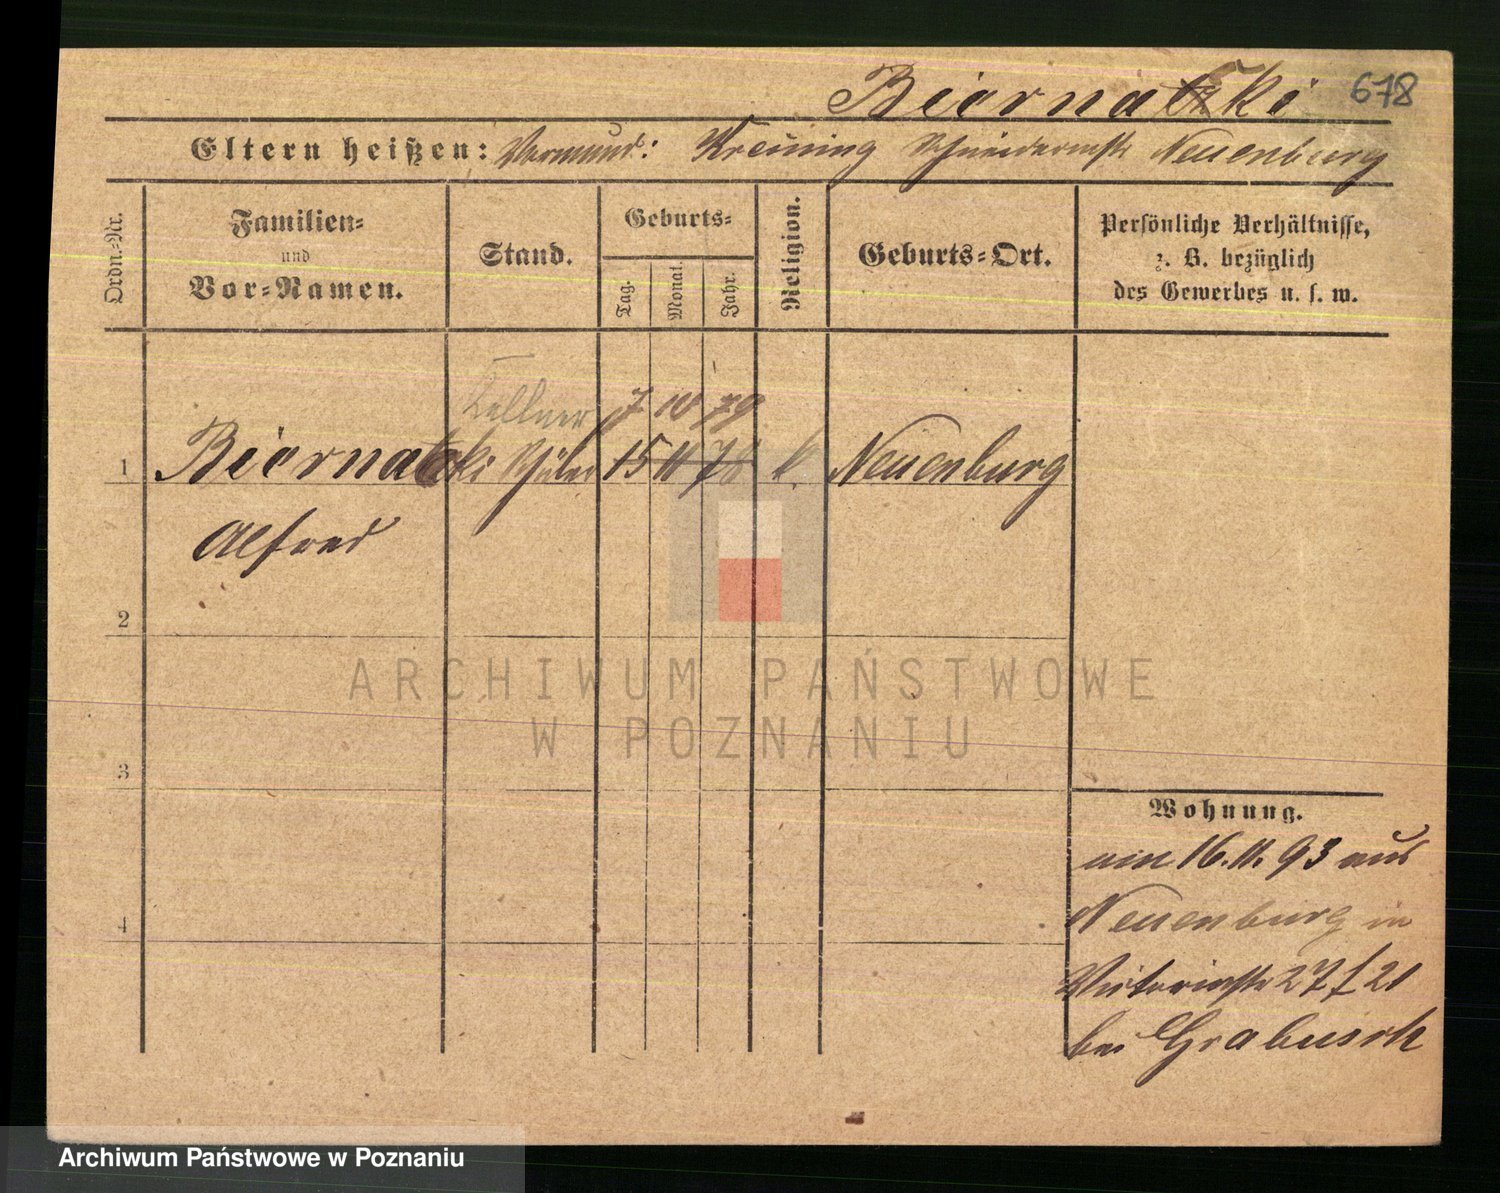 Biernatzki 678
Eltern heißen: Vormund: Kreuning Schneidermstr Neuenburg
Ordn.-Nr.
Familien-
und
Vor-Namen.
Stand.
Geburts-
Tag.
Monat.
Jahr.
Religion.
Geburts-Ort.
Persönliche Verhältnisse,
z. B. bezüglich
des Gewerbes u. s. w.
Kellner 7 10 79
1 Biernatzki Schüler 15 11 78 k. Neuenburg
Alfred
2
3
4
Wohnung.
am 16.11.93 aus
Neuenburg in
Victoriastr 27 / 21
bei Grabusch
ARCHIWUM PAŃSTWOWE
W POZNANIU
Archiwum Państwowe w Poznaniu